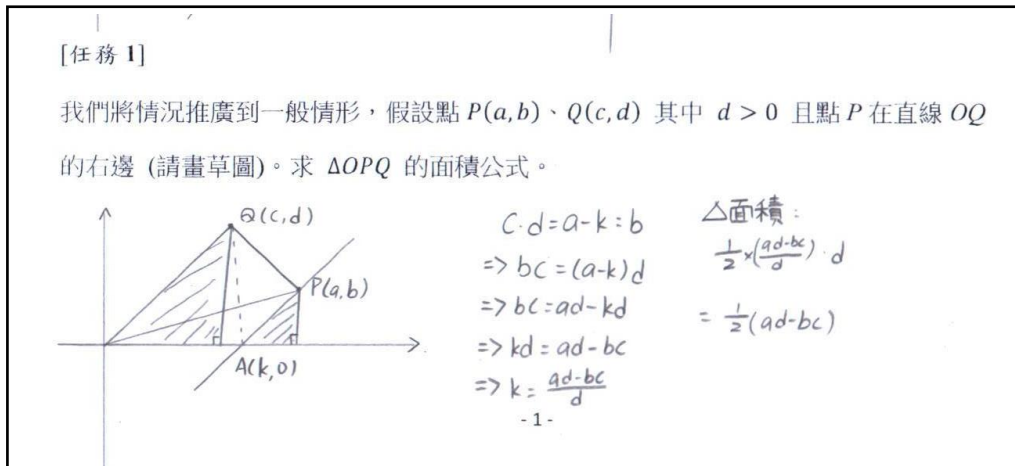 [任務 1]
我們將情況推廣到一般情形，假設點 P(a,b)、Q(c,d) 其中 d > 0 且點 P 在直線 OQ
的右邊 (請畫草圖)。求 ΔOPQ 的面積公式。
Q(c,d)
P(a,b)
A(k,0)
c:d=a-k:b
=> bc=(a-k)d
=> bc=ad-kd
=> kd=ad-bc
=> k=\frac{ad-bc}{d}
△面積:
\frac{1}{2}×(\frac{ad-bc}{d})·d
=\frac{1}{2}(ad-bc)
- 1 -